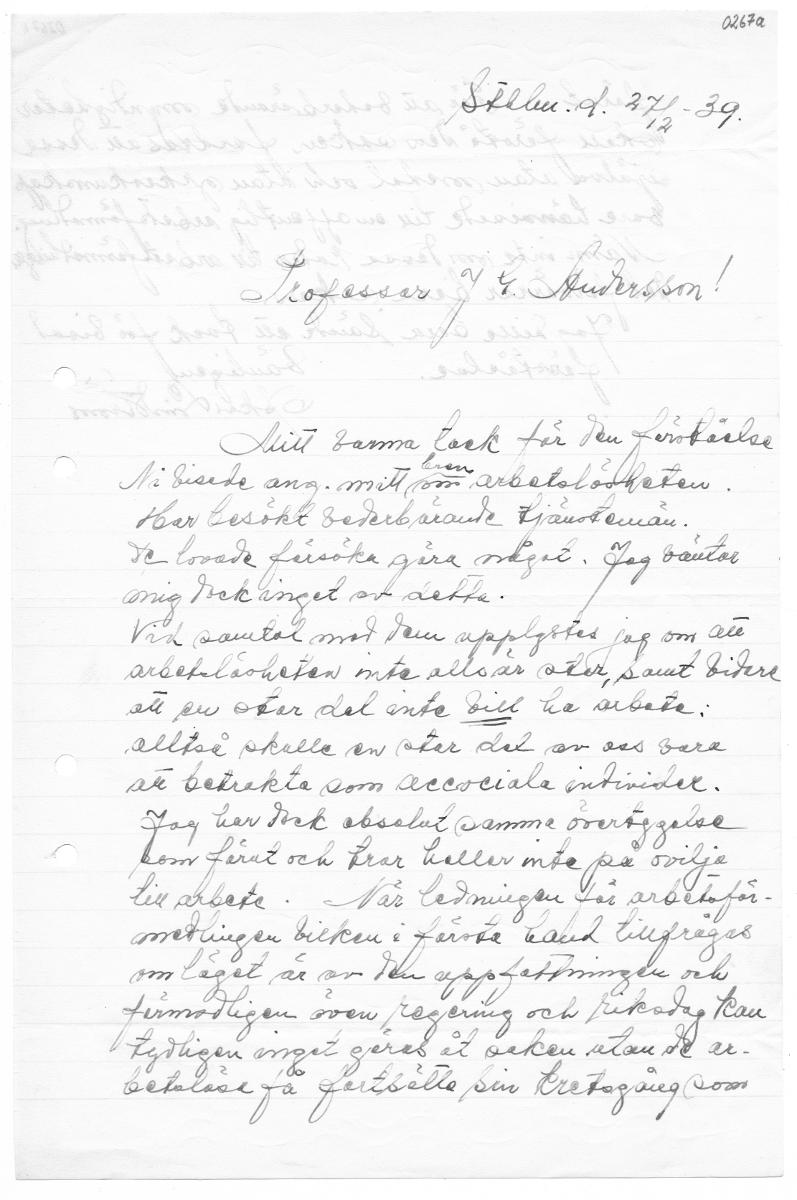 0267a
Sthlm. d. 27/12 - 39.
Professor J G. Andersson!
Mitt varma tack för den förståelse
Ni visade ang. mitt brev om arbetslösheten.
Har besökt vederbärande tjänstemän.
De lovade försöka göra något. Jag väntar
mig dock inget av detta.
Vid samtal med dem upplystes jag om att
arbetslösheten inte alls är stor, samt vidare
att en stor del inte vill ha arbete;
alltså skulle en stor del av oss vara
att betrakta som accociala individer.
Jag har dock absolut samma övertygelse
som förut och tror heller inte på ovilja
till arbete. När ledningen för arbetsför-
medlingen vilken i första hand tillfrågas
om läget är av den uppfattningen och
förmodligen även regering och riksdag kan
tydligen inget göras åt saken utan de ar-
betslösa få fortsätta sin kretsgång som